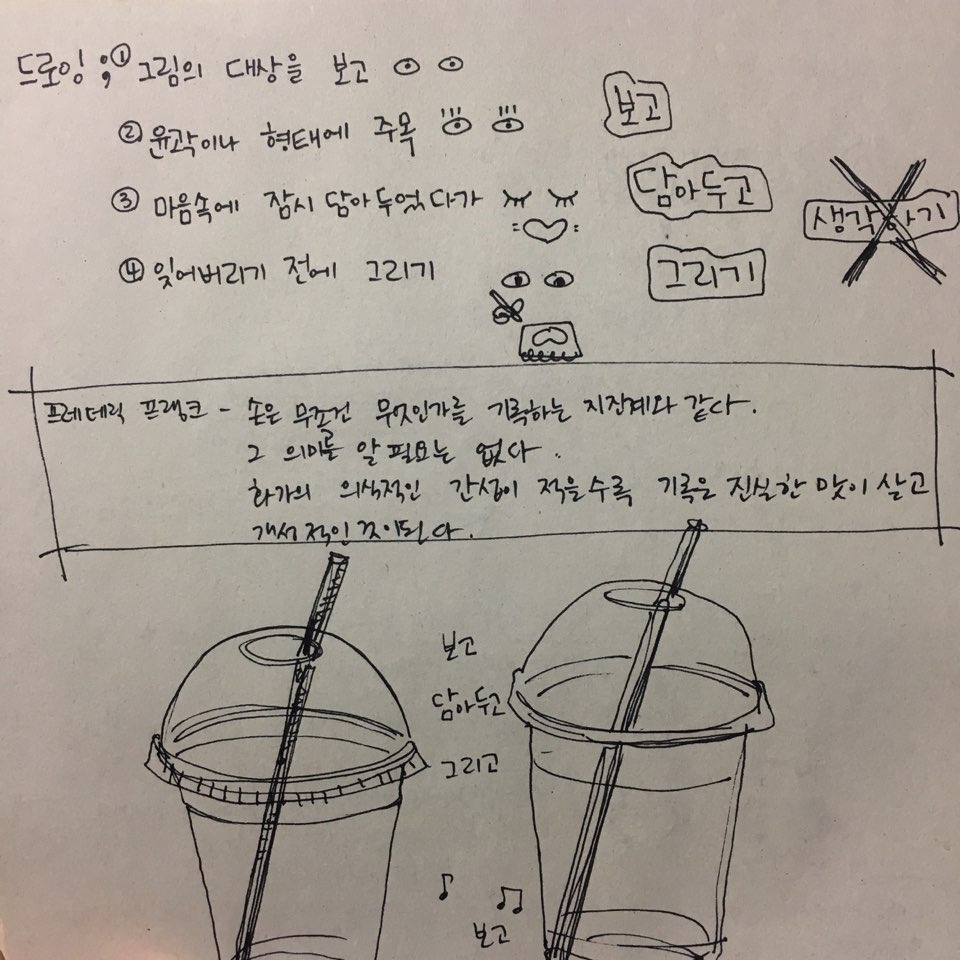 드로잉 ; ① 그림의 대상을 보고
② 윤곽이나 형태에 주목
보고
③ 마음속에 잠시 담아두었다가
담아두고
생각하기
④ 잊어버리기 전에 그리기
그리기
프레데릭 프랭크 - 손은 무조건 무엇인가를 기록하는 지진계와 같다.
그 의미를 알 필요는 없다.
화가의 의식적인 간섭이 적을수록 기록은 진실한 맛이 살고
개성적인 것이된다.
보고
담아두고
그리고
보고